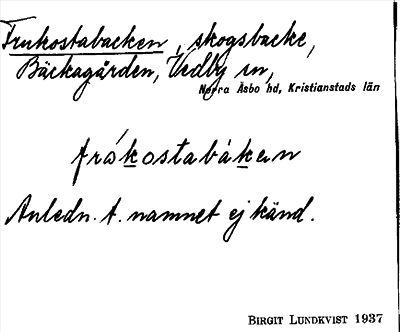 Frukostabacken, skogsbacke,
Bäckagården, Vedby sn,
Norra Åsbo hd, Kristianstads län
frókostabákan
Anledn. t. namnet ej känd.
BIRGIT LUNDKVIST 1937